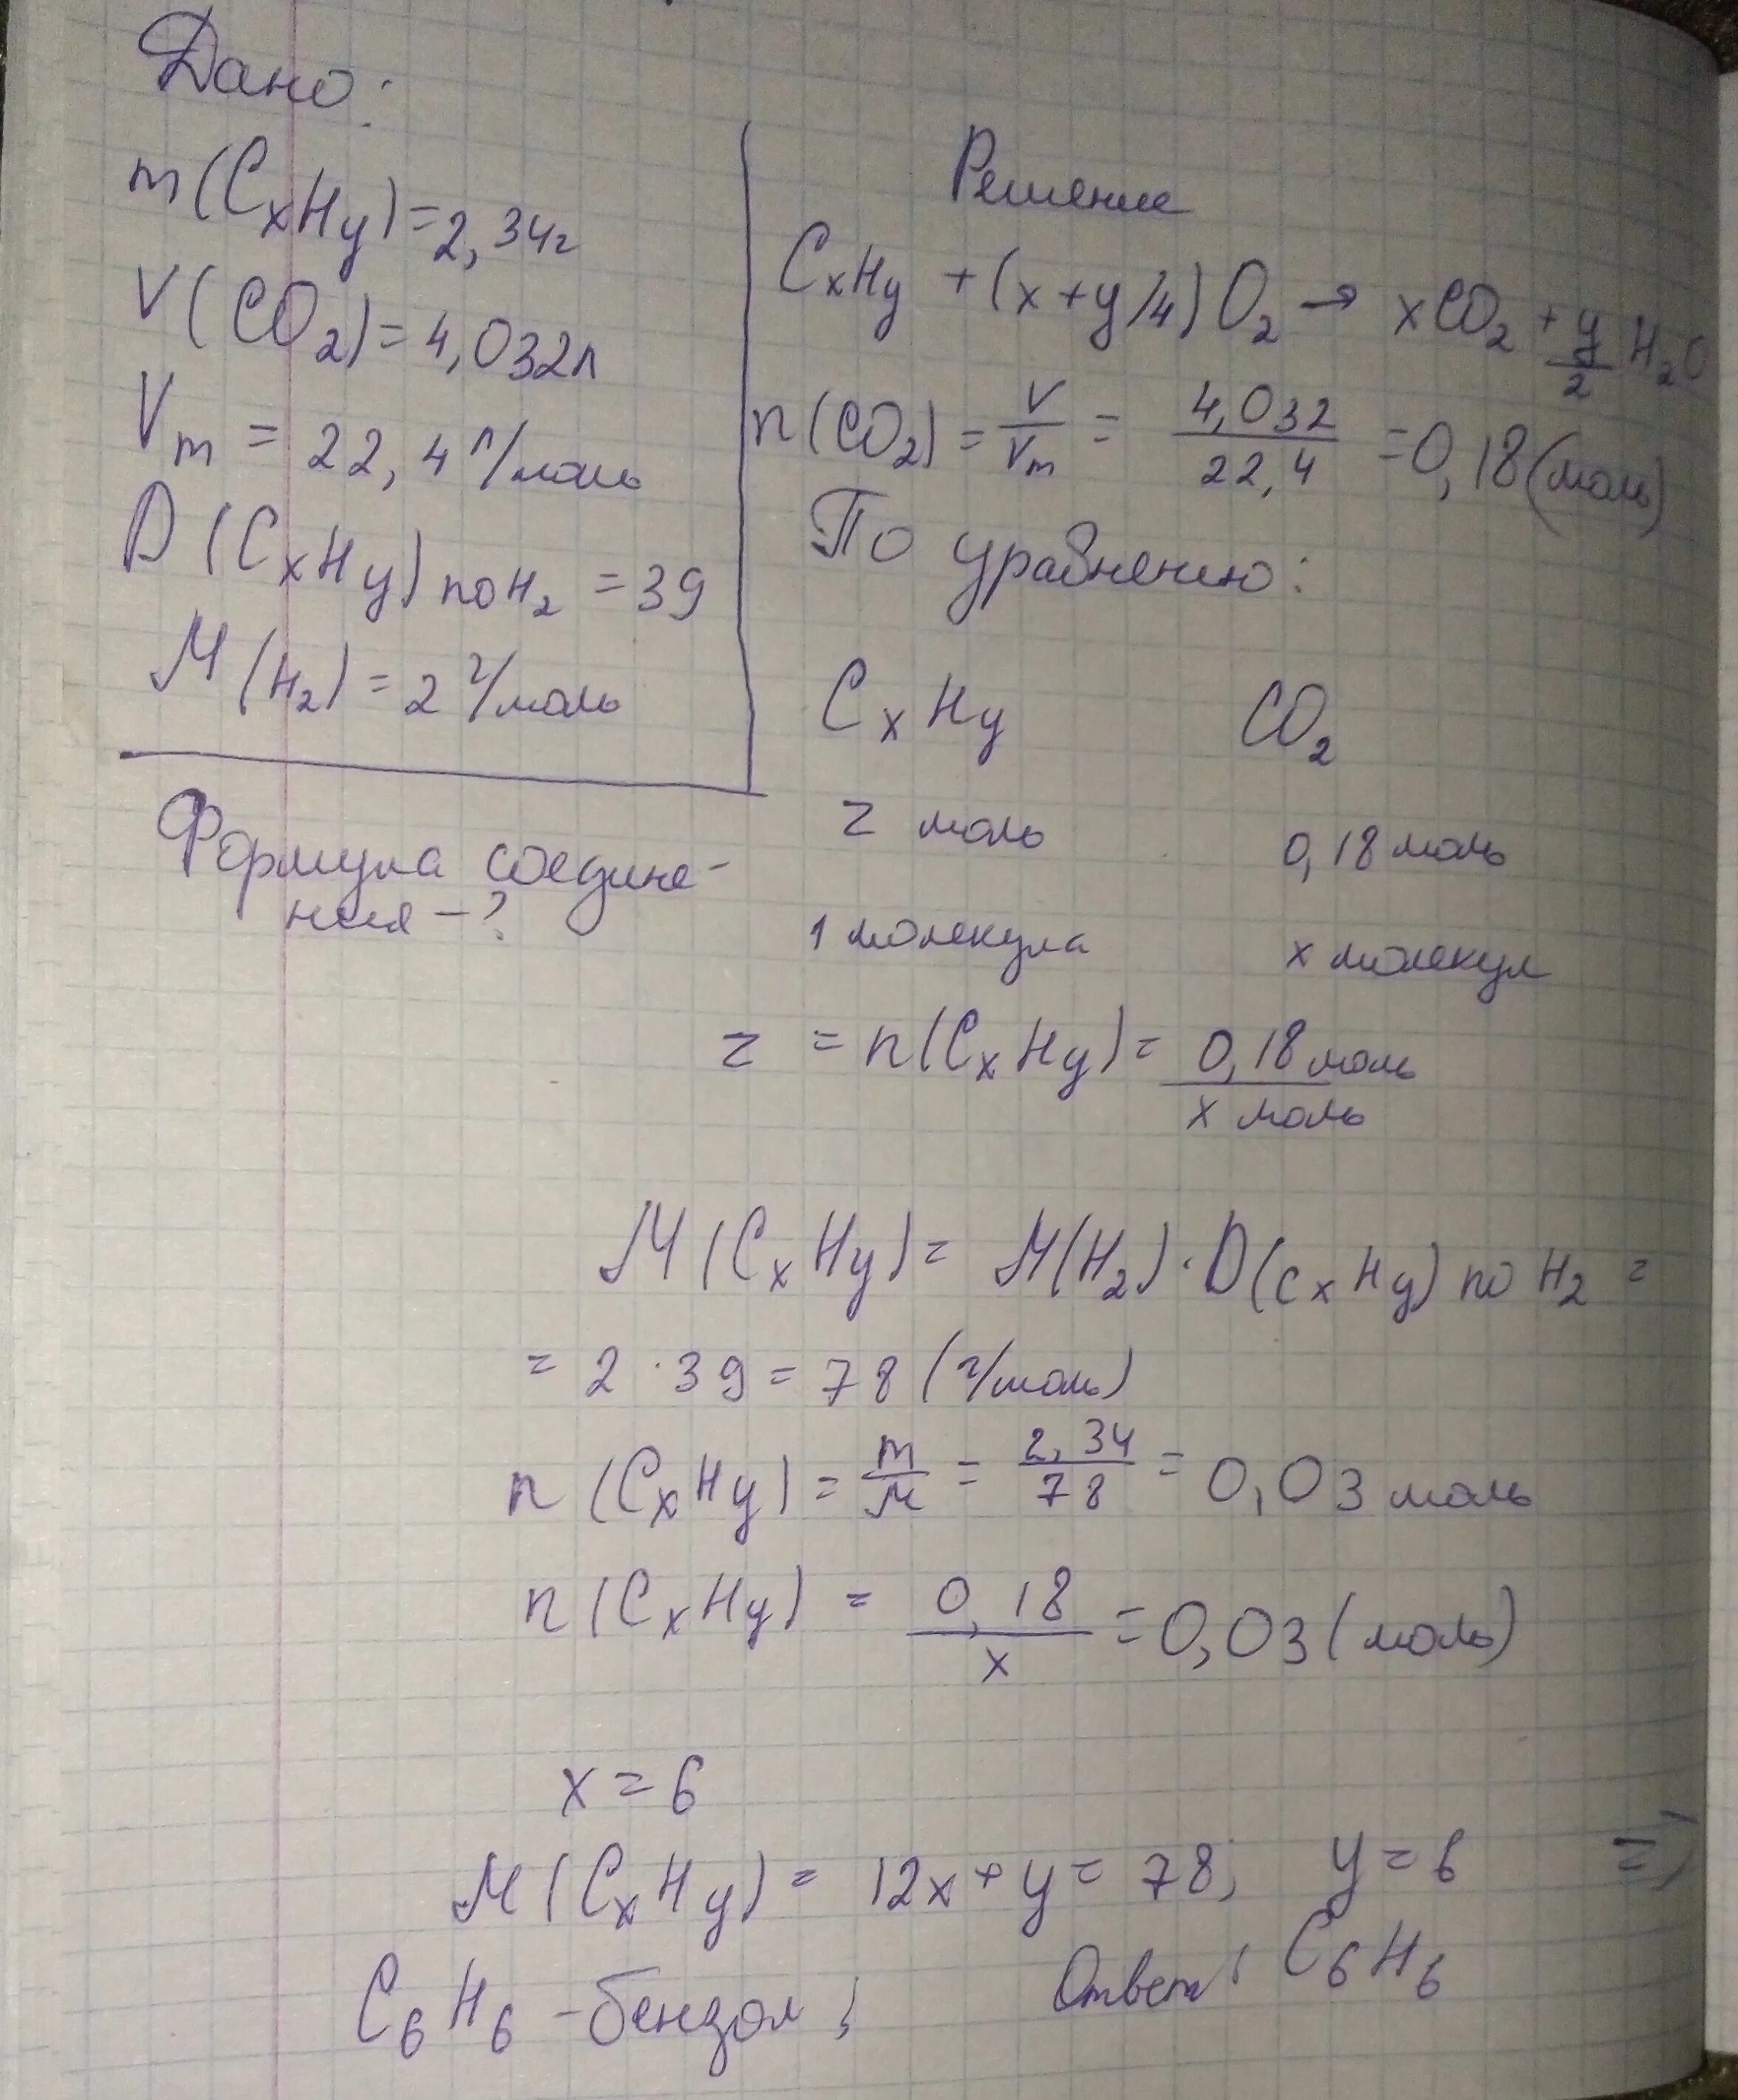 Дано:
m(CxHy)=2,34г
V(CO₂)=4,032л
Vm = 22,4 л/моль
D(CxHy) по H₂ = 39
M(H₂) = 2 г/моль
Формула соедине-
ния – ?
Решение
CxHy + (x+y/4)O₂ → xCO₂ + y/2 H₂O
n(CO₂) = V/Vm = 4,032/22,4 = 0,18(моль)
По уравнению:
CxHy CO₂
z моль 0,18 моль
1 молекула x молекул
z = n(CxHy) = 0,18 моль/x моль
M(CxHy) = M(H₂)·D(CxHy) по H₂ =
= 2·39 = 78 (г/моль)
n(CxHy) = m/M = 2,34/78 = 0,03 моль
n(CxHy) = 0,18/x = 0,03 (моль)
x = 6
M(CxHy) = 12x + y = 78; y = 6 =>
C₆H₆ – бензол; Ответ: C₆H₆